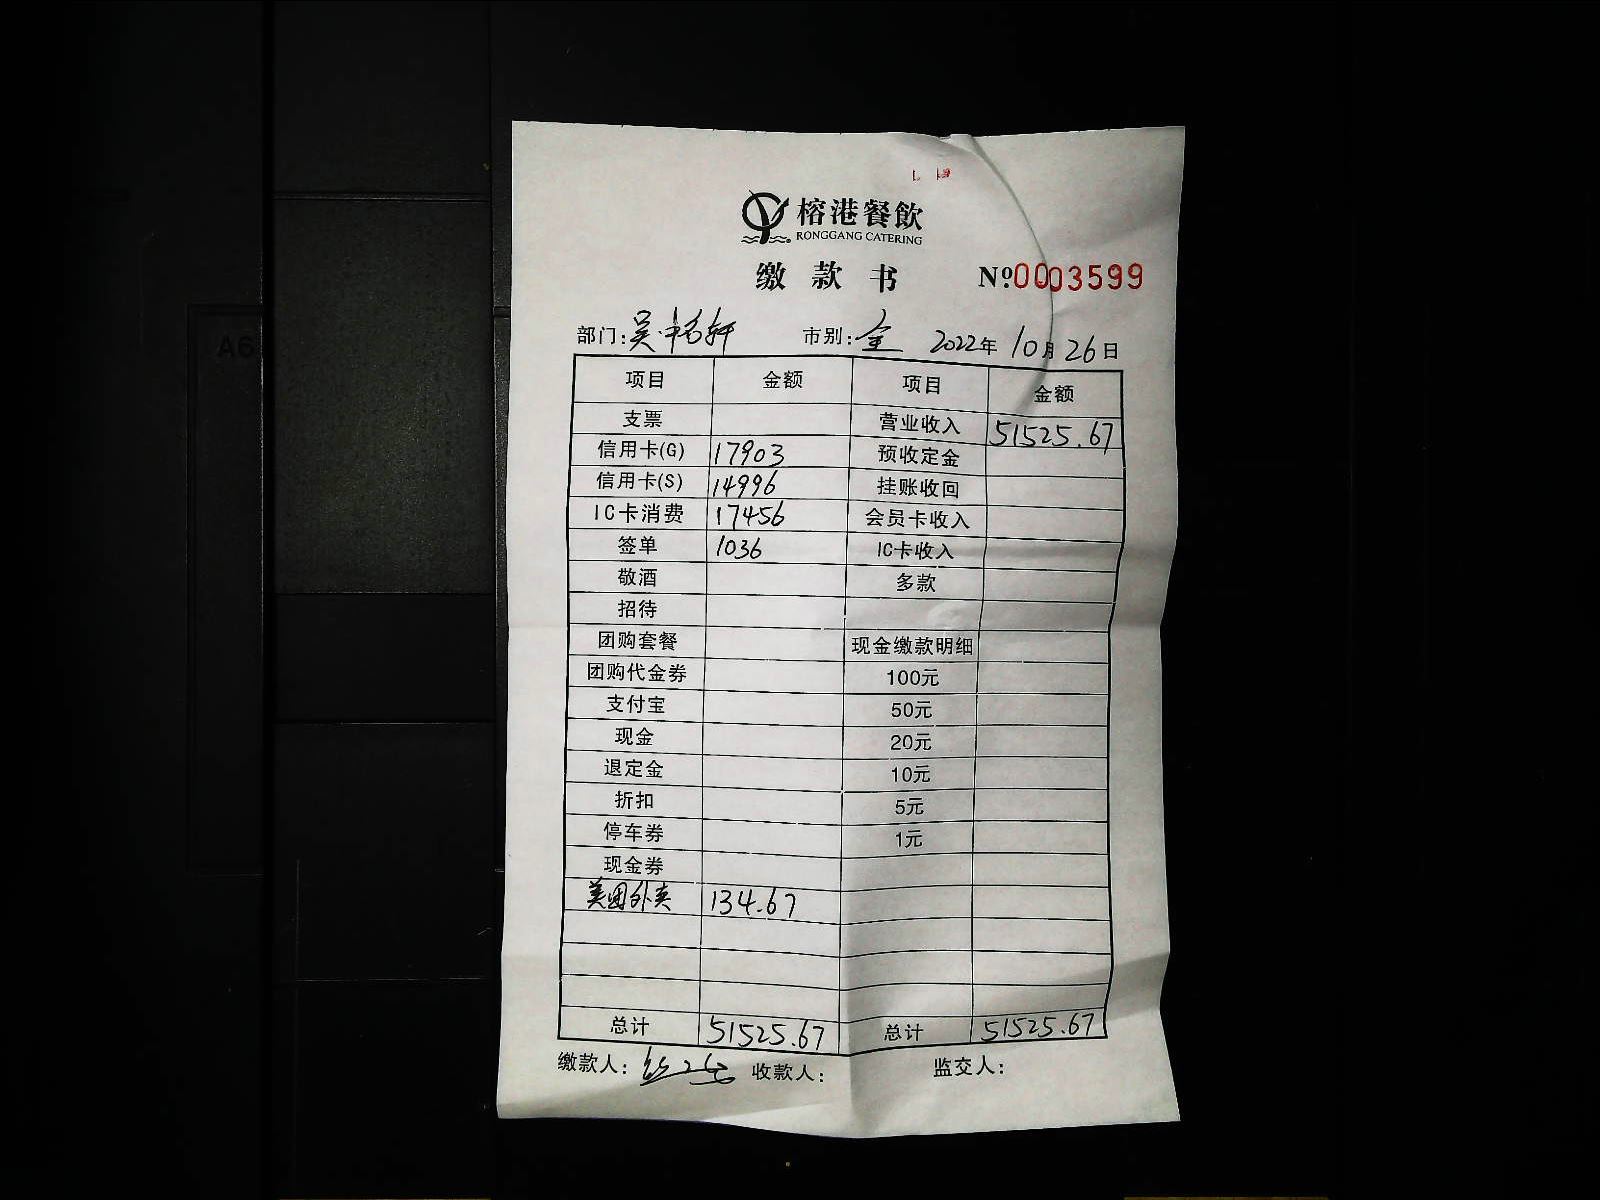 榕港餐飲
RONGGANG CATERING
缴款书 №0003599
部门: 吴·铭轩 市别: 全 2022年10月26日
项目 金额 项目 金额
支票 营业收入 51525.67
信用卡(G) 17903 预收定金
信用卡(S) 14996 挂账收回
IC卡消费 17456 会员卡收入
签单 1036 IC卡收入
敬酒 多款
招待
团购套餐 现金缴款明细
团购代金券 100元
支付宝 50元
现金 20元
退定金 10元
折扣 5元
停车券 1元
现金券
美团外卖 134.67
总计 51525.67 总计 51525.67
缴款人: 收款人: 监交人:
A6